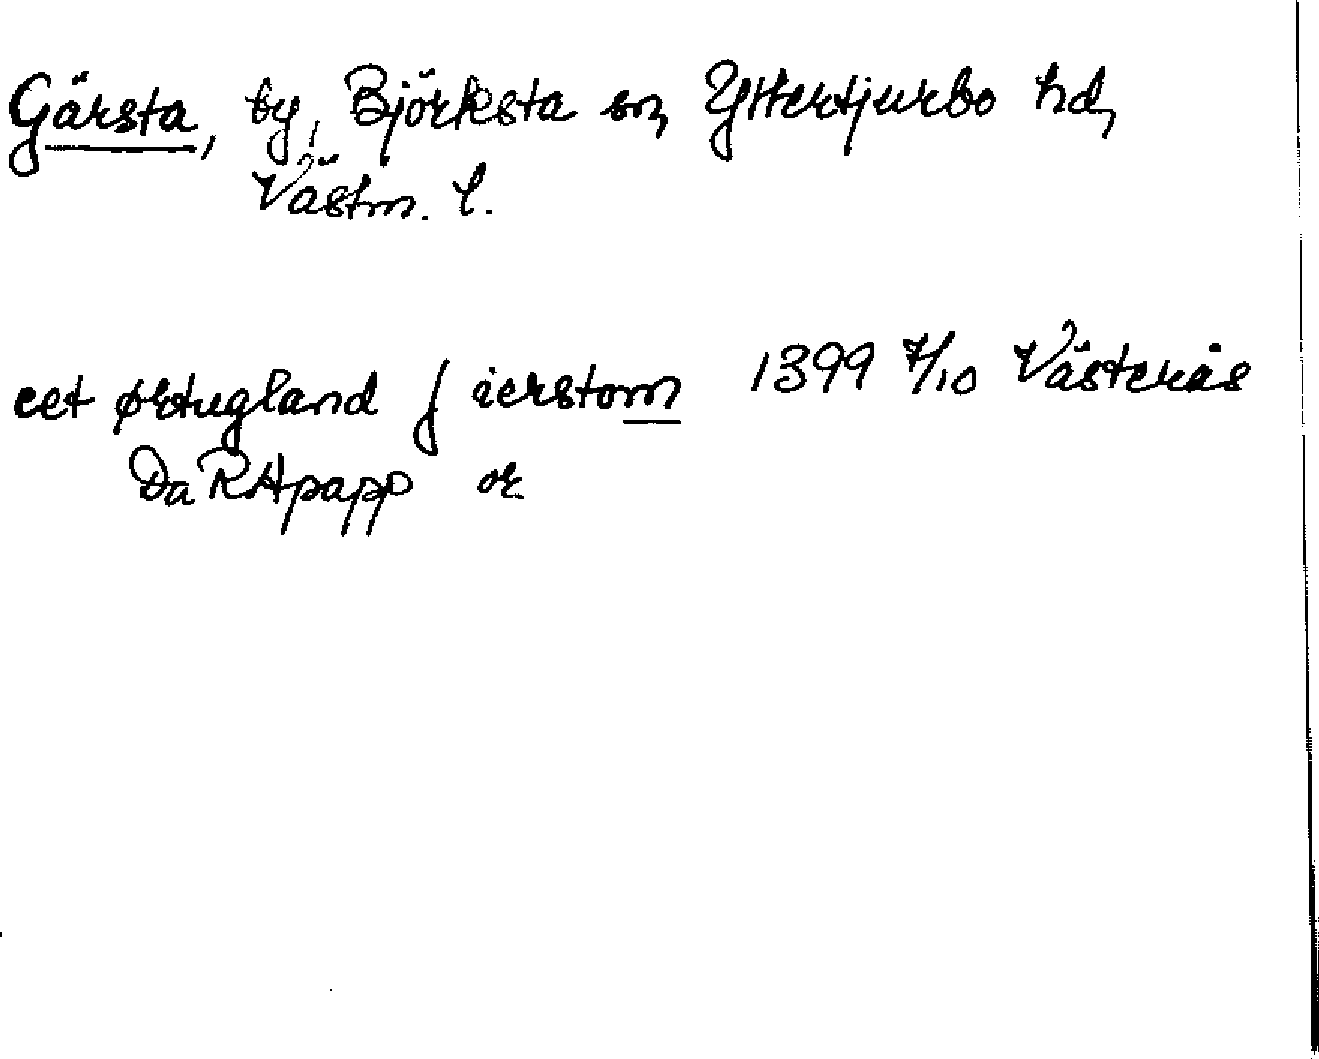 Gärsta, by, Björksta sn, Yttertjurbo hd,
Västm. l.
eet ørtugland j ierstom 1399 7/10 Västerås
Da RApapp or